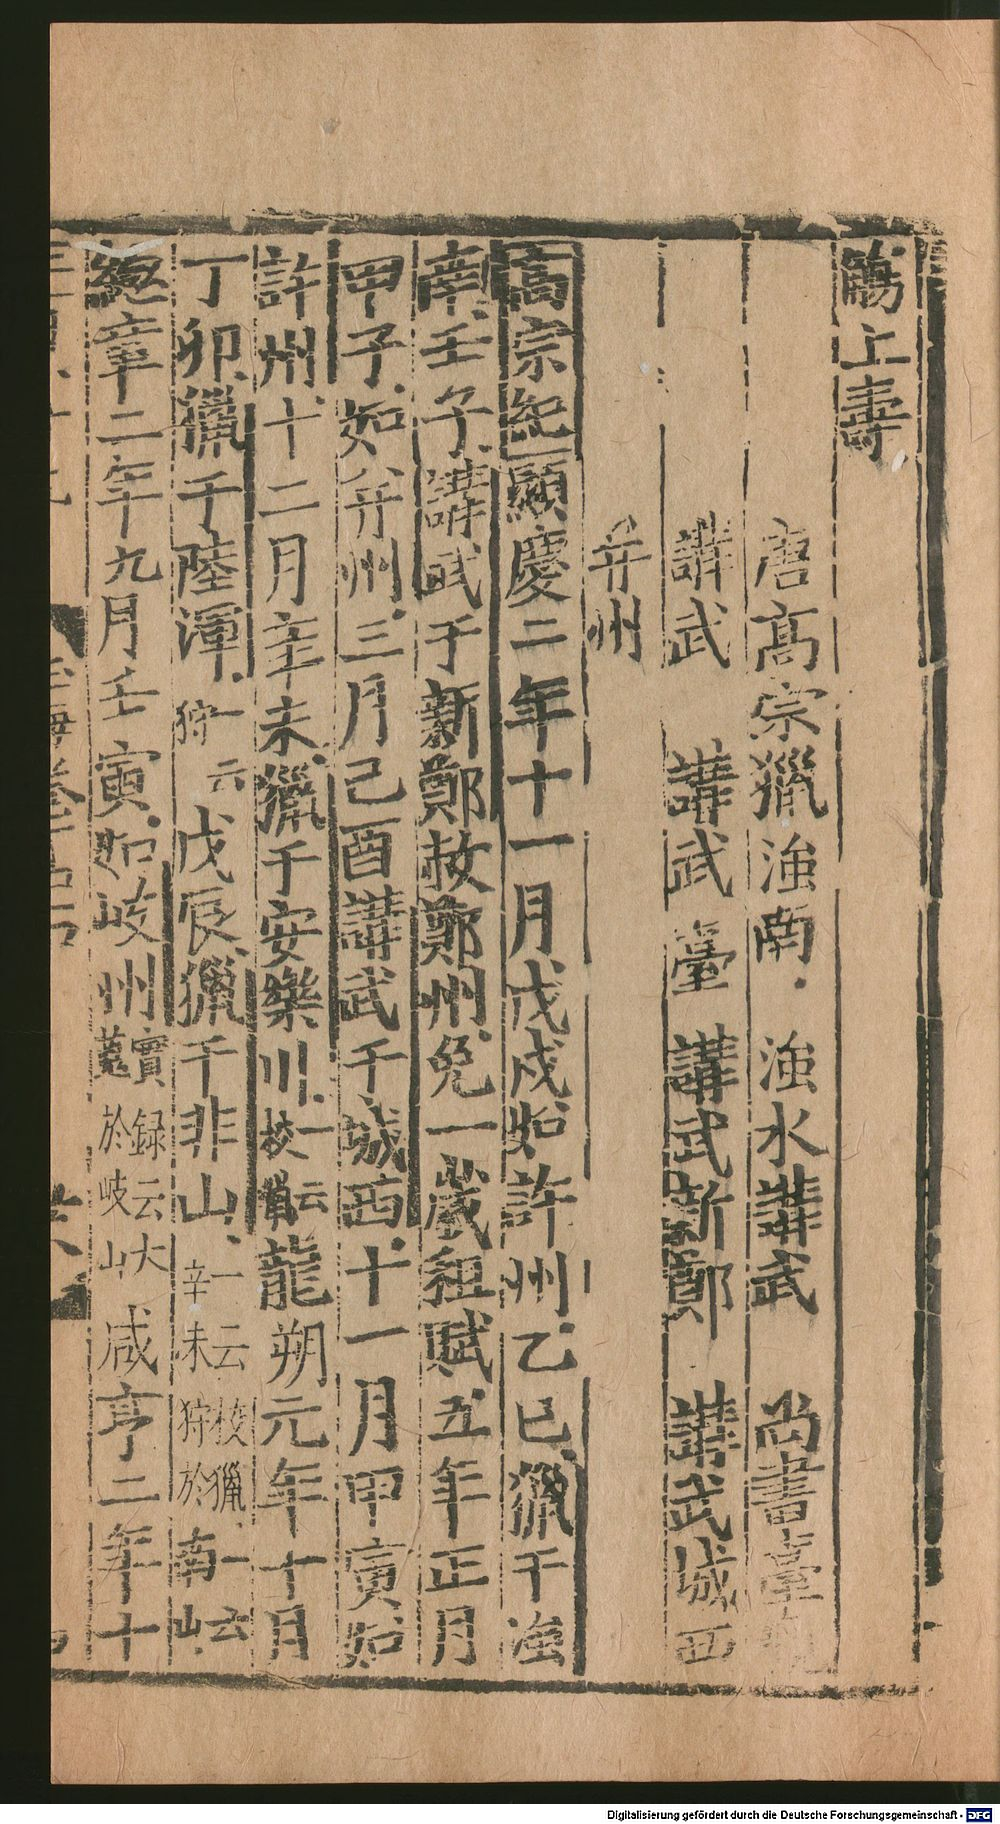 觴上壽
唐高宗獵滍南 滍水講武 尚書臺
講武 講武臺 講武新鄭 講武城西
并州
高宗紀顯慶二年十一月戊戌如許州乙巳獵于滍
南壬子講武于新鄭赦鄭州免一歲租賦五年正月
甲子如并州三月己酉講武于城西十一月甲寅如
許州十二月辛未獵于安樂川一云校獵龍朔元年十月
丁卯獵于陸渾一云狩戊辰獵于非山一云校獵一云辛未狩於南山
總章二年九月壬寅如岐州實録云大蒐於岐山咸亨二年十
Digitalisierung gefördert durch die Deutsche Forschungsgemeinschaft - DFG